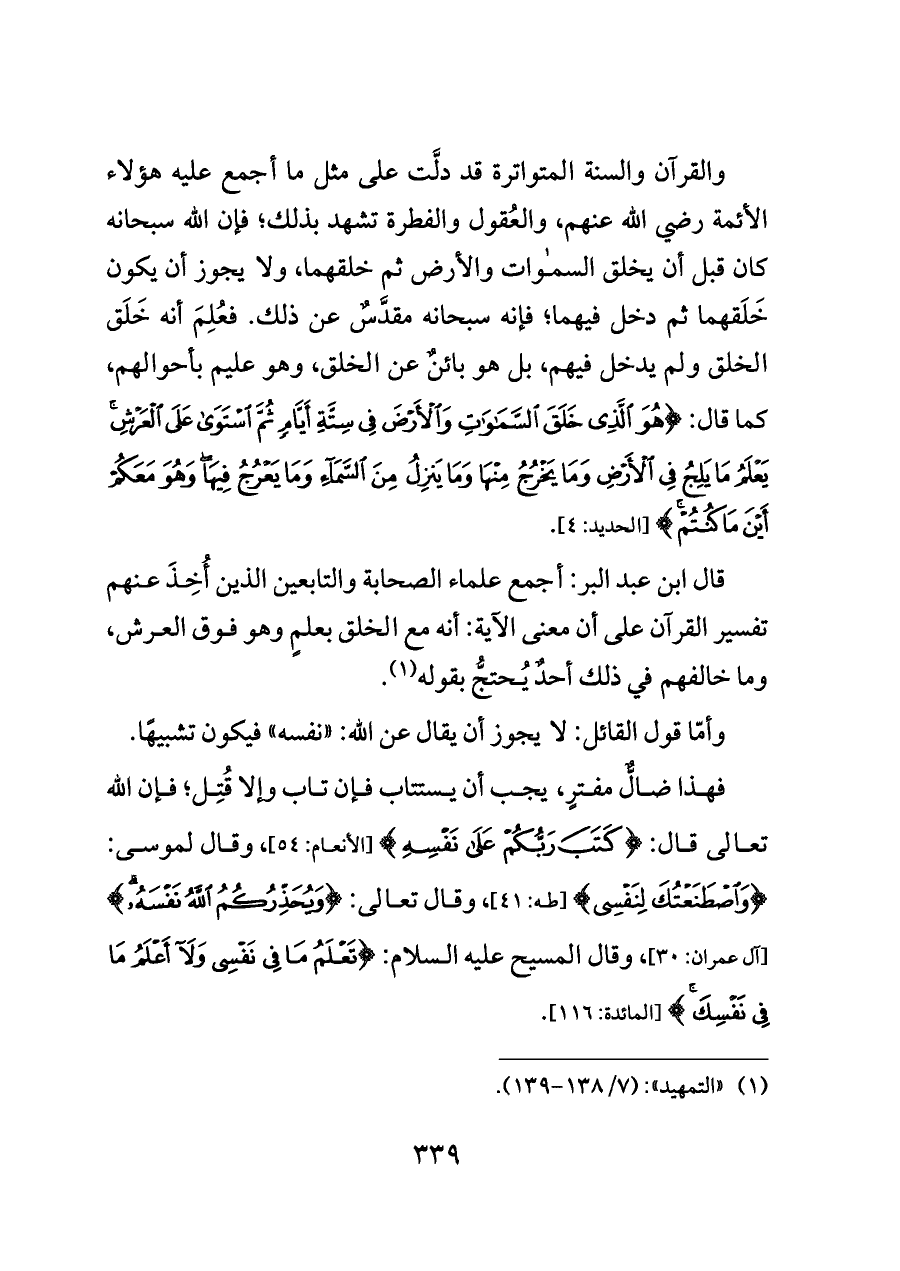 والقرآن والسنة المتواترة قد دلَّت على مثل ما أجمع عليه هؤلاء
الأئمة رضي الله عنهم، والعُقول والفطرة تشهد بذلك؛ فإن الله سبحانه
كان قبل أن يخلق السمٰوات والأرض ثم خلقهما، ولا يجوز أن يكون
خَلَقهما ثم دخل فيهما؛ فإنه سبحانه مقدَّسٌ عن ذلك. فعُلِمَ أنه خَلَق
الخلق ولم يدخل فيهم، بل هو بائنٌ عن الخلق، وهو عليم بأحوالهم،
كما قال: ﴿هُوَ ٱلَّذِى خَلَقَ ٱلسَّمَٰوَٰتِ وَٱلْأَرْضَ فِى سِتَّةِ أَيَّامٍ ثُمَّ ٱسْتَوَىٰ عَلَى ٱلْعَرْشِ ۚ
يَعْلَمُ مَا يَلِجُ فِى ٱلْأَرْضِ وَمَا يَخْرُجُ مِنْهَا وَمَا يَنزِلُ مِنَ ٱلسَّمَآءِ وَمَا يَعْرُجُ فِيهَا ۖ وَهُوَ مَعَكُمْ
أَيْنَ مَا كُنتُمْ ۚ﴾ [الحديد: ٤].
قال ابن عبد البر: أجمع علماء الصحابة والتابعين الذين أُخِذَ عنهم
تفسير القرآن على أن معنى الآية: أنه مع الخلق بعلمٍ وهو فوق العرش،
وما خالفهم في ذلك أحدٌ يُحتجُّ بقوله(١).
وأمّا قول القائل: لا يجوز أن يقال عن الله: «نفسه» فيكون تشبيهًا.
فهذا ضالٌّ مفترٍ، يجب أن يستتاب فإن تاب وإلا قُتِل؛ فإن الله
تعالى قال: ﴿كَتَبَ رَبُّكُمْ عَلَىٰ نَفْسِهِ﴾ [الأنعام: ٥٤]، وقال لموسى:
﴿وَٱصْطَنَعْتُكَ لِنَفْسِى﴾ [طه: ٤١]، وقال تعالى: ﴿وَيُحَذِّرُكُمُ ٱللَّهُ نَفْسَهُۥ ۗ﴾
[آل عمران: ٣٠]، وقال المسيح عليه السلام: ﴿تَعْلَمُ مَا فِى نَفْسِى وَلَآ أَعْلَمُ مَا
فِى نَفْسِكَ ۚ﴾ [المائدة: ١١٦].
(١) «التمهيد»: (٧/ ١٣٨–١٣٩).
٣٣٩